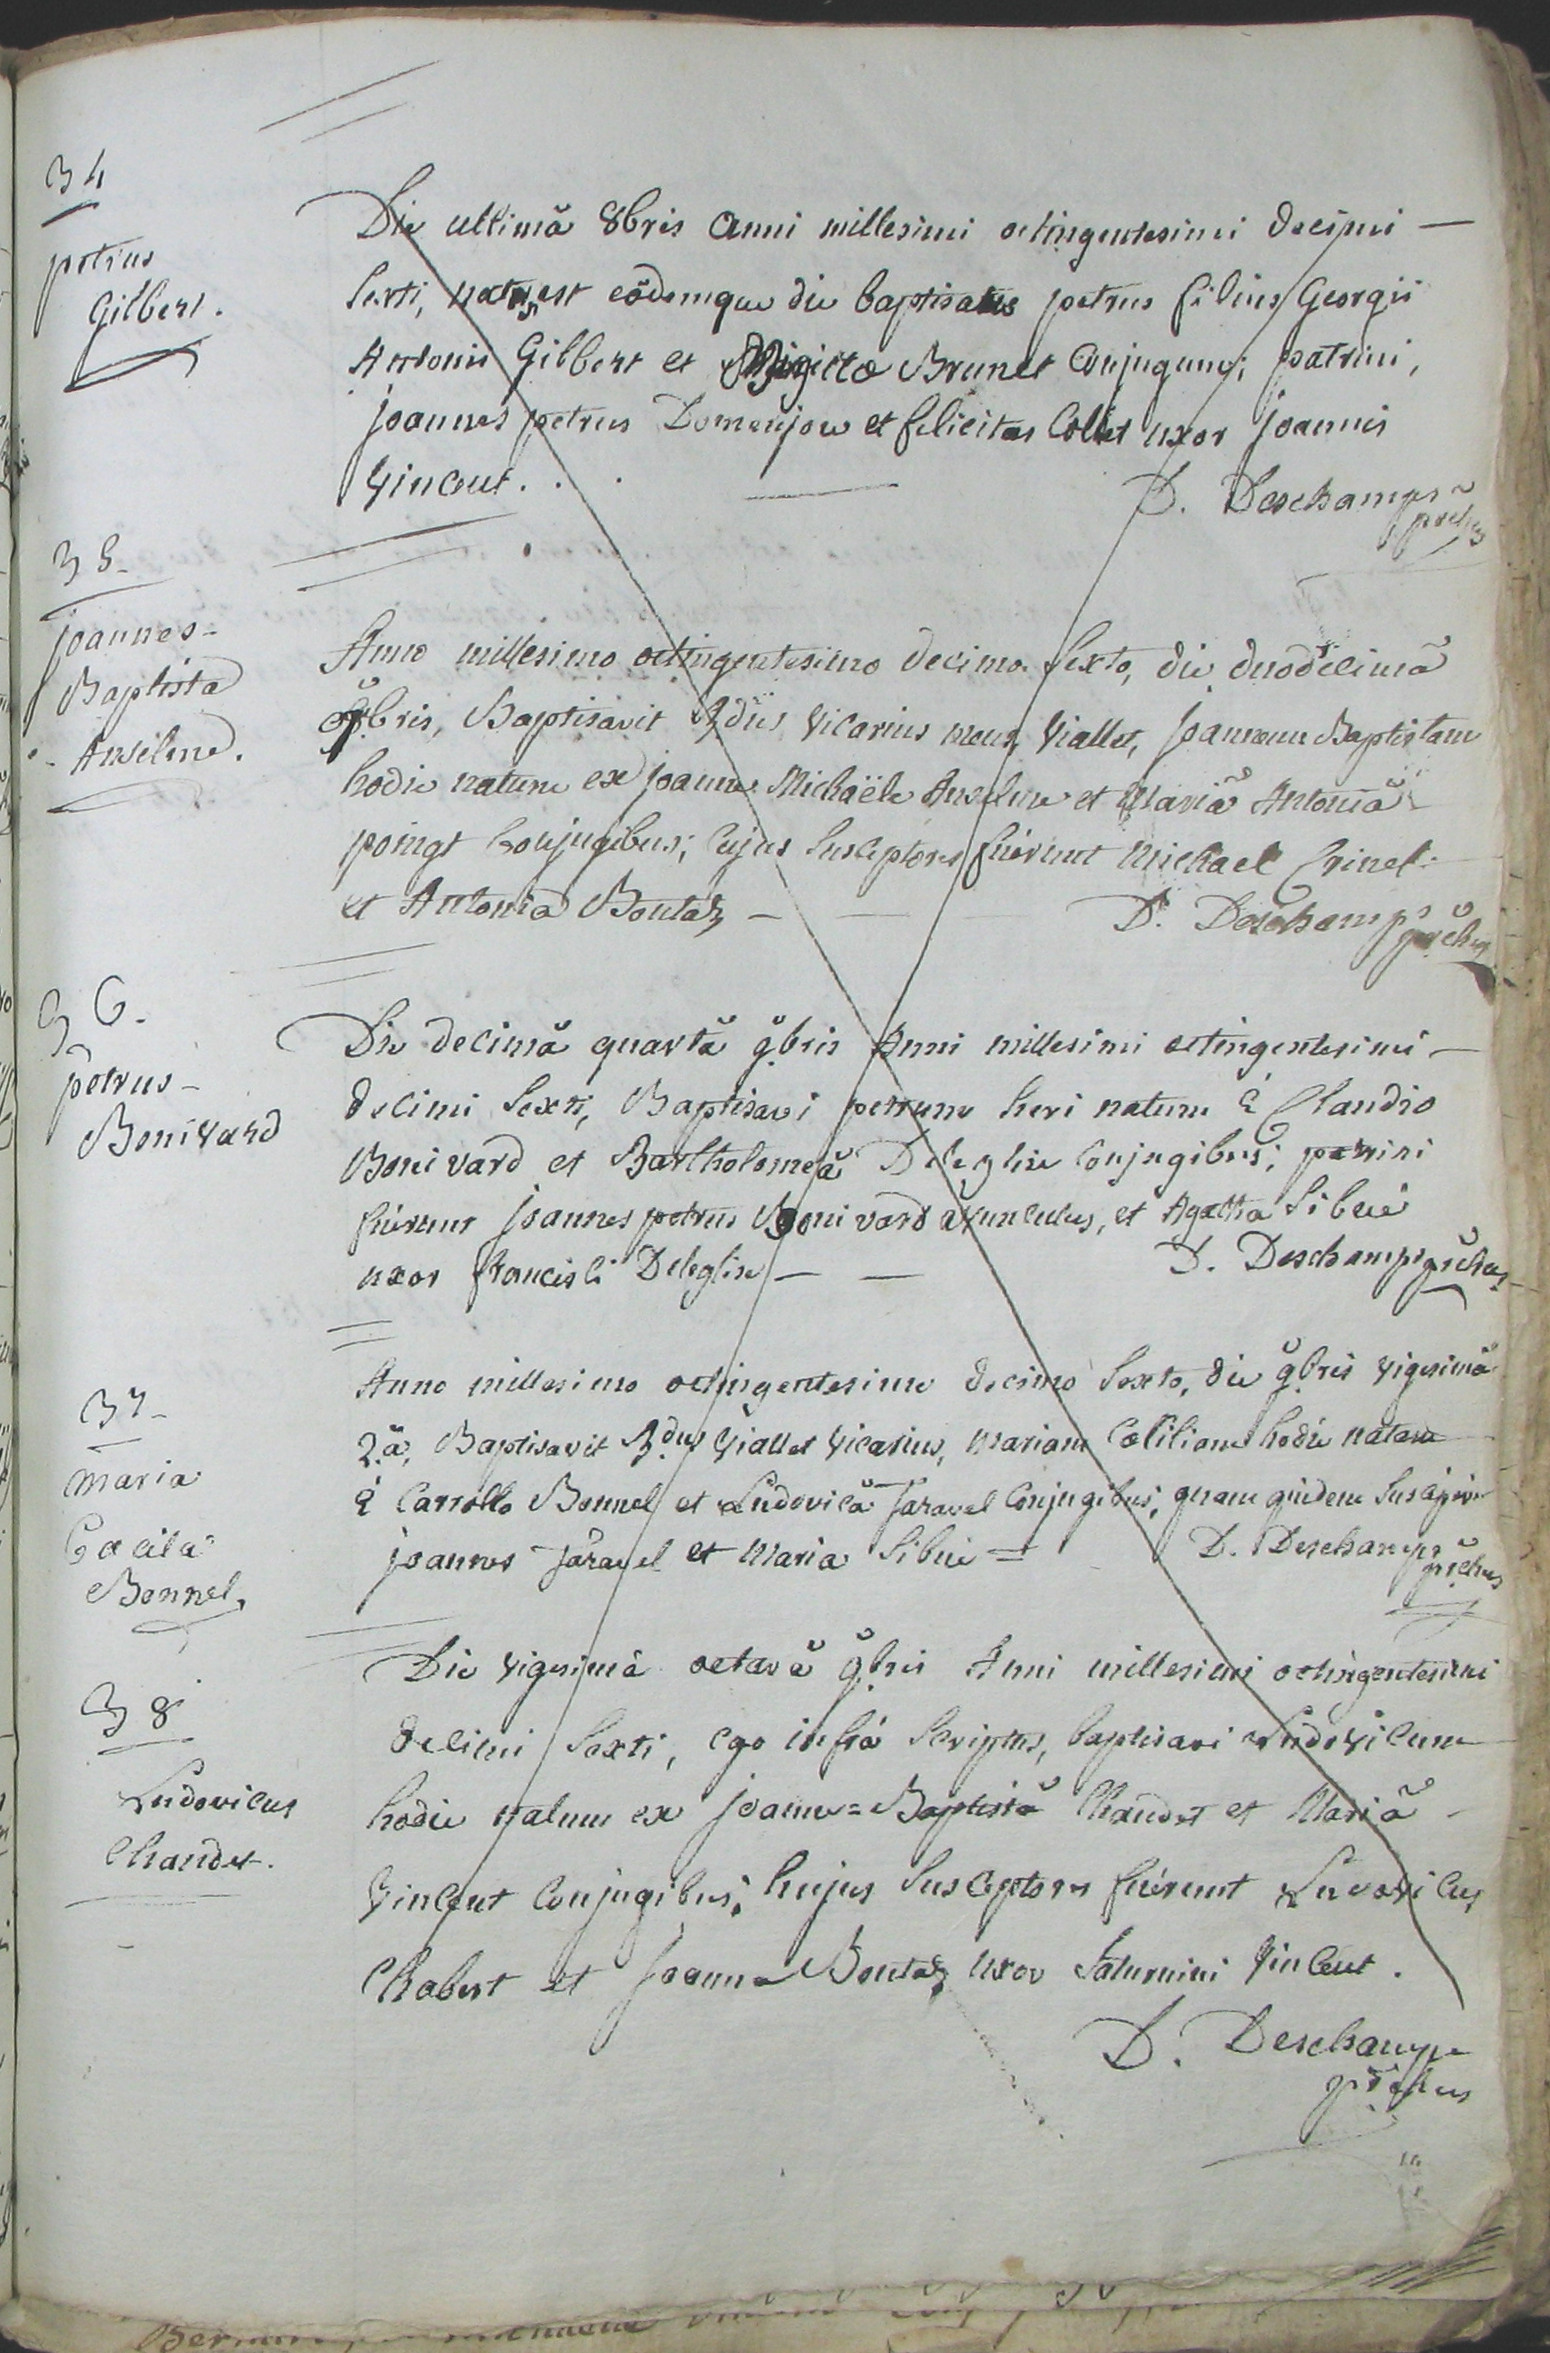 34
petrus
Gilbert.
Die ultimâ 8bris anni millesimi octingentesimi decimi
sexti, natus est eâdemque die baptisatus petrus filius Georgii
Antonii Gilbert et Brigittæ Brunet conjugum; patrini,
joannes petrus Domenjou et felicitas Collet uxor joannis
Vincent.
D. Deschamps pr̃chus
35.
joannes-
Baptista
Anselme.
Anno millesimo octingentesimo decimo sexto, die duodecimâ
9bris, Baptisavit Rdus vicarius meus, Viallet, joannem Baptistam
hodie natum ex joanne Michaële Anselme et Mariâ Antoniâ
poingt conjugibus; cujus susceptores fuêrunt Michael Crinel
et Antonia Boutaz
D. Deschamps pr̃chus
36.
petrus-
Bonivard
Die decimâ quartâ 9bris Anni millesimi octingentesimi
decimi sexti, Baptisavi petrum heri natum è Claudio
Bonivard et Bartholomeâ Deleglise conjugibus; patrini
fuêrunt joannes petrus Bonivard avunculus, et Agatha Sibué
uxor francisci Deleglise
D. Deschamps pr̃chus
37-
maria
Cæcilia
Bonnel,
Anno millesimo octingentesimo decimo sexto, die 9bris vigesimâ
2.â, Baptisavit R.dus Viallet vicarius, mariam Cæciliam hodie natam
è Carrollo Bonnel et Ludovicâ Jaravel conjugibus, quam quidem
joannes Jaravel et Maria Sibué =
D. Deschamps pr̃chus
38
Ludovicus
Chaudet.
Die vigesimâ octavâ 9bris Anni millesimi octingentesimi
decimi sexti, ego infrà scriptus, baptisavi Ludovicum
hodie natum ex joanne=Baptistâ Chaudet et Mariâ
Vincent conjugibus; hujus susceptores fuêrunt Ludovicus
Chabert et joanna Boutaz uxor Saturnini Vincent.
D. Deschamps
pr̃chus